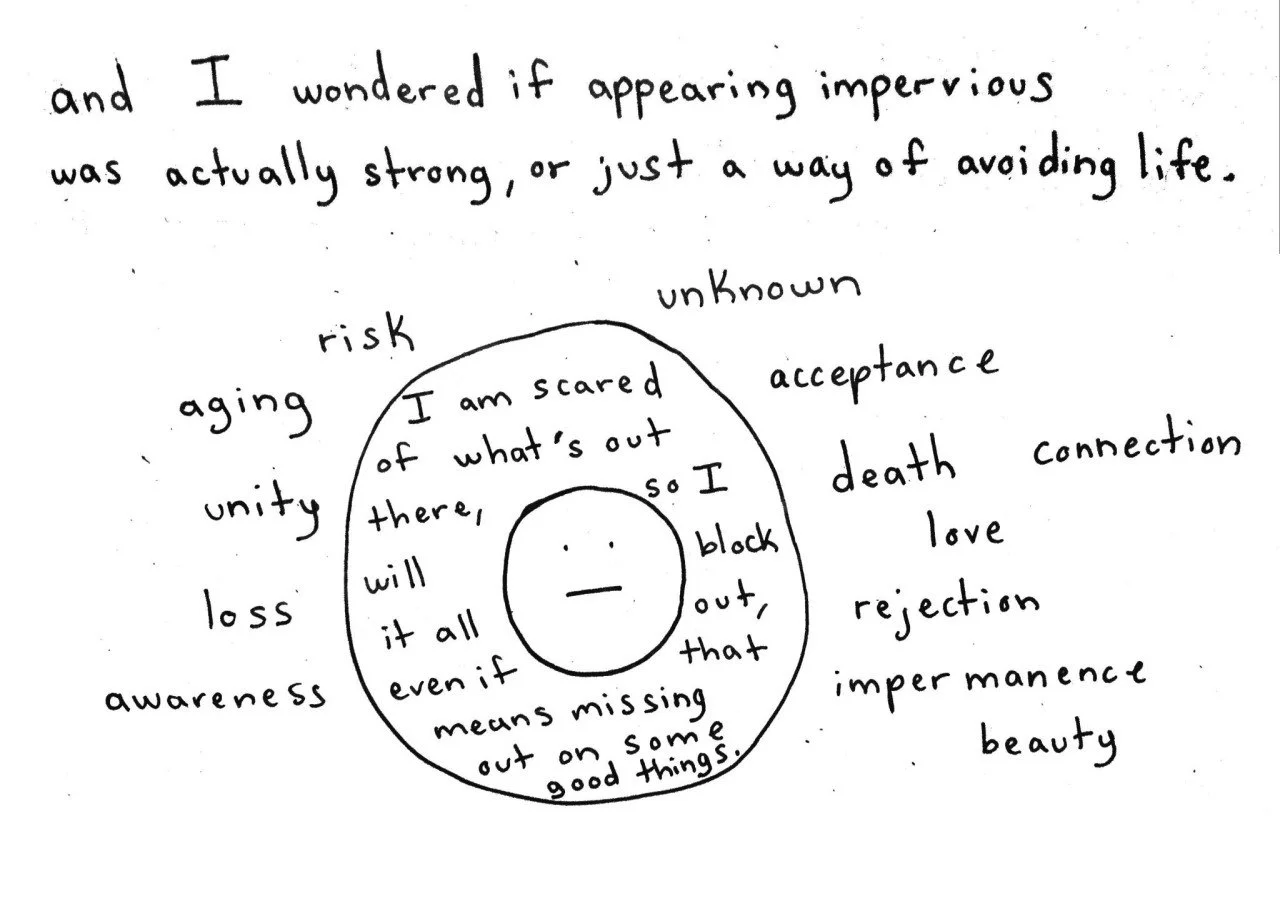 and I wondered if appearing impervious
was actually strong, or just a way of avoiding life.
unknown
risk
acceptance
aging
connection
death
unity
love
loss
rejection
awareness
impermanence
beauty
I am scared
of what's out
there, so I
will block
it all out,
even if that
means missing
out on some
good things.